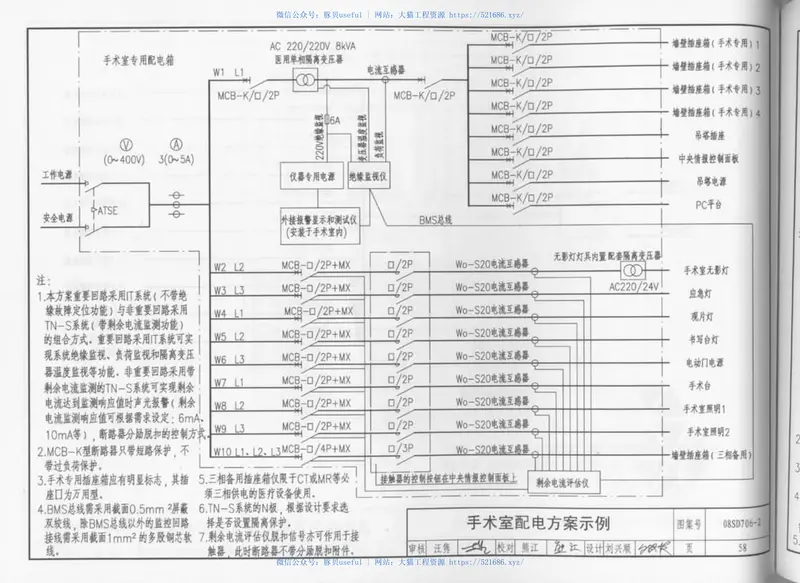 微信公众号：豚贝useful | 网站：大猫工程资源 https://521686.xyz/
手术室专用配电箱
AC 220/220V 8kVA
医用单相隔离变压器
电流互感器
W1 L1
MCB-K/□/2P
MCB-K/□/2P
MCB-K/□/2P
墙壁插座箱(手术专用)1
MCB-K/□/2P
墙壁插座箱(手术专用)2
MCB-K/□/2P
墙壁插座箱(手术专用)3
MCB-K/□/2P
墙壁插座箱(手术专用)4
MCB-K/□/2P
吊塔插座
MCB-K/□/2P
中央情报控制面板
MCB-K/□/2P
吊塔电源
MCB-K/□/2P
PC平台
6A
220V绝缘监视
变压器温度监视
负荷监视
V
(0~400V)
A
3(0~5A)
工作电源
安全电源
ATSE
仪器专用电源
绝缘监视仪
外接报警显示和测试仪
(安装于手术室内)
BMS总线
无影灯灯具内置配套隔离变压器
W2 L2 MCB-□/2P+MX □/2P Wo-S20电流互感器 AC220/24V 手术室无影灯
W3 L3 MCB-□/2P+MX □/2P Wo-S20电流互感器 应急灯
W4 L1 MCB-□/2P+MX □/2P Wo-S20电流互感器 观片灯
W5 L2 MCB-□/2P+MX □/2P Wo-S20电流互感器 书写台灯
W6 L3 MCB-□/2P+MX □/2P Wo-S20电流互感器 电动门电源
W7 L1 MCB-□/2P+MX □/2P Wo-S20电流互感器 手术台
W8 L2 MCB-□/2P+MX □/2P Wo-S20电流互感器 手术室照明1
W9 L3 MCB-□/2P+MX □/2P Wo-S20电流互感器 手术室照明2
W10 L1、L2、L3 MCB-□/4P+MX □/3P Wo-S20电流互感器 墙壁插座箱(三相备用)
接触器的控制按钮在中央情报控制面板上
剩余电流评估仪
注：
1.本方案重要回路采用IT系统(不带绝
缘故障定位功能)与非重要回路采用
TN-S系统(带剩余电流监测功能)
的组合方式。重要回路采用IT系统可实
现系统绝缘监视、负荷监视和隔离变压
器温度监视等功能。非重要回路采用带
剩余电流监测的TN-S系统可实现剩余
电流达到监测响应值时声光报警(剩余
电流监测响应值可根据需求设定：6mA、
10mA等)，断路器分励脱扣的控制方式。
2.MCB-K型断路器只带短路保护，不
带过负荷保护。
3.手术专用插座箱应有明显标志，其插
座口为万用型。
4.BMS总线需采用截面0.5mm²屏蔽
双绞线，除BMS总线以外的监控回路
接线需采用截面1mm²的多股铜芯软
线。
5.三相备用插座箱仅限于CT或MR等必
须三相供电的医疗设备使用。
6.TN-S系统的N极，根据设计要求选
择是否设置隔离保护。
7.剩余电流评估仪脱扣信号亦可作用于接
触器，此时断路器不带分励脱扣附件。
手术室配电方案示例
图集号 08SD706-2
审核 汪隽 校对 熊江 设计 刘兴顺 页 58
微信公众号：豚贝useful | 网站：大猫工程资源 https://521686.xyz/